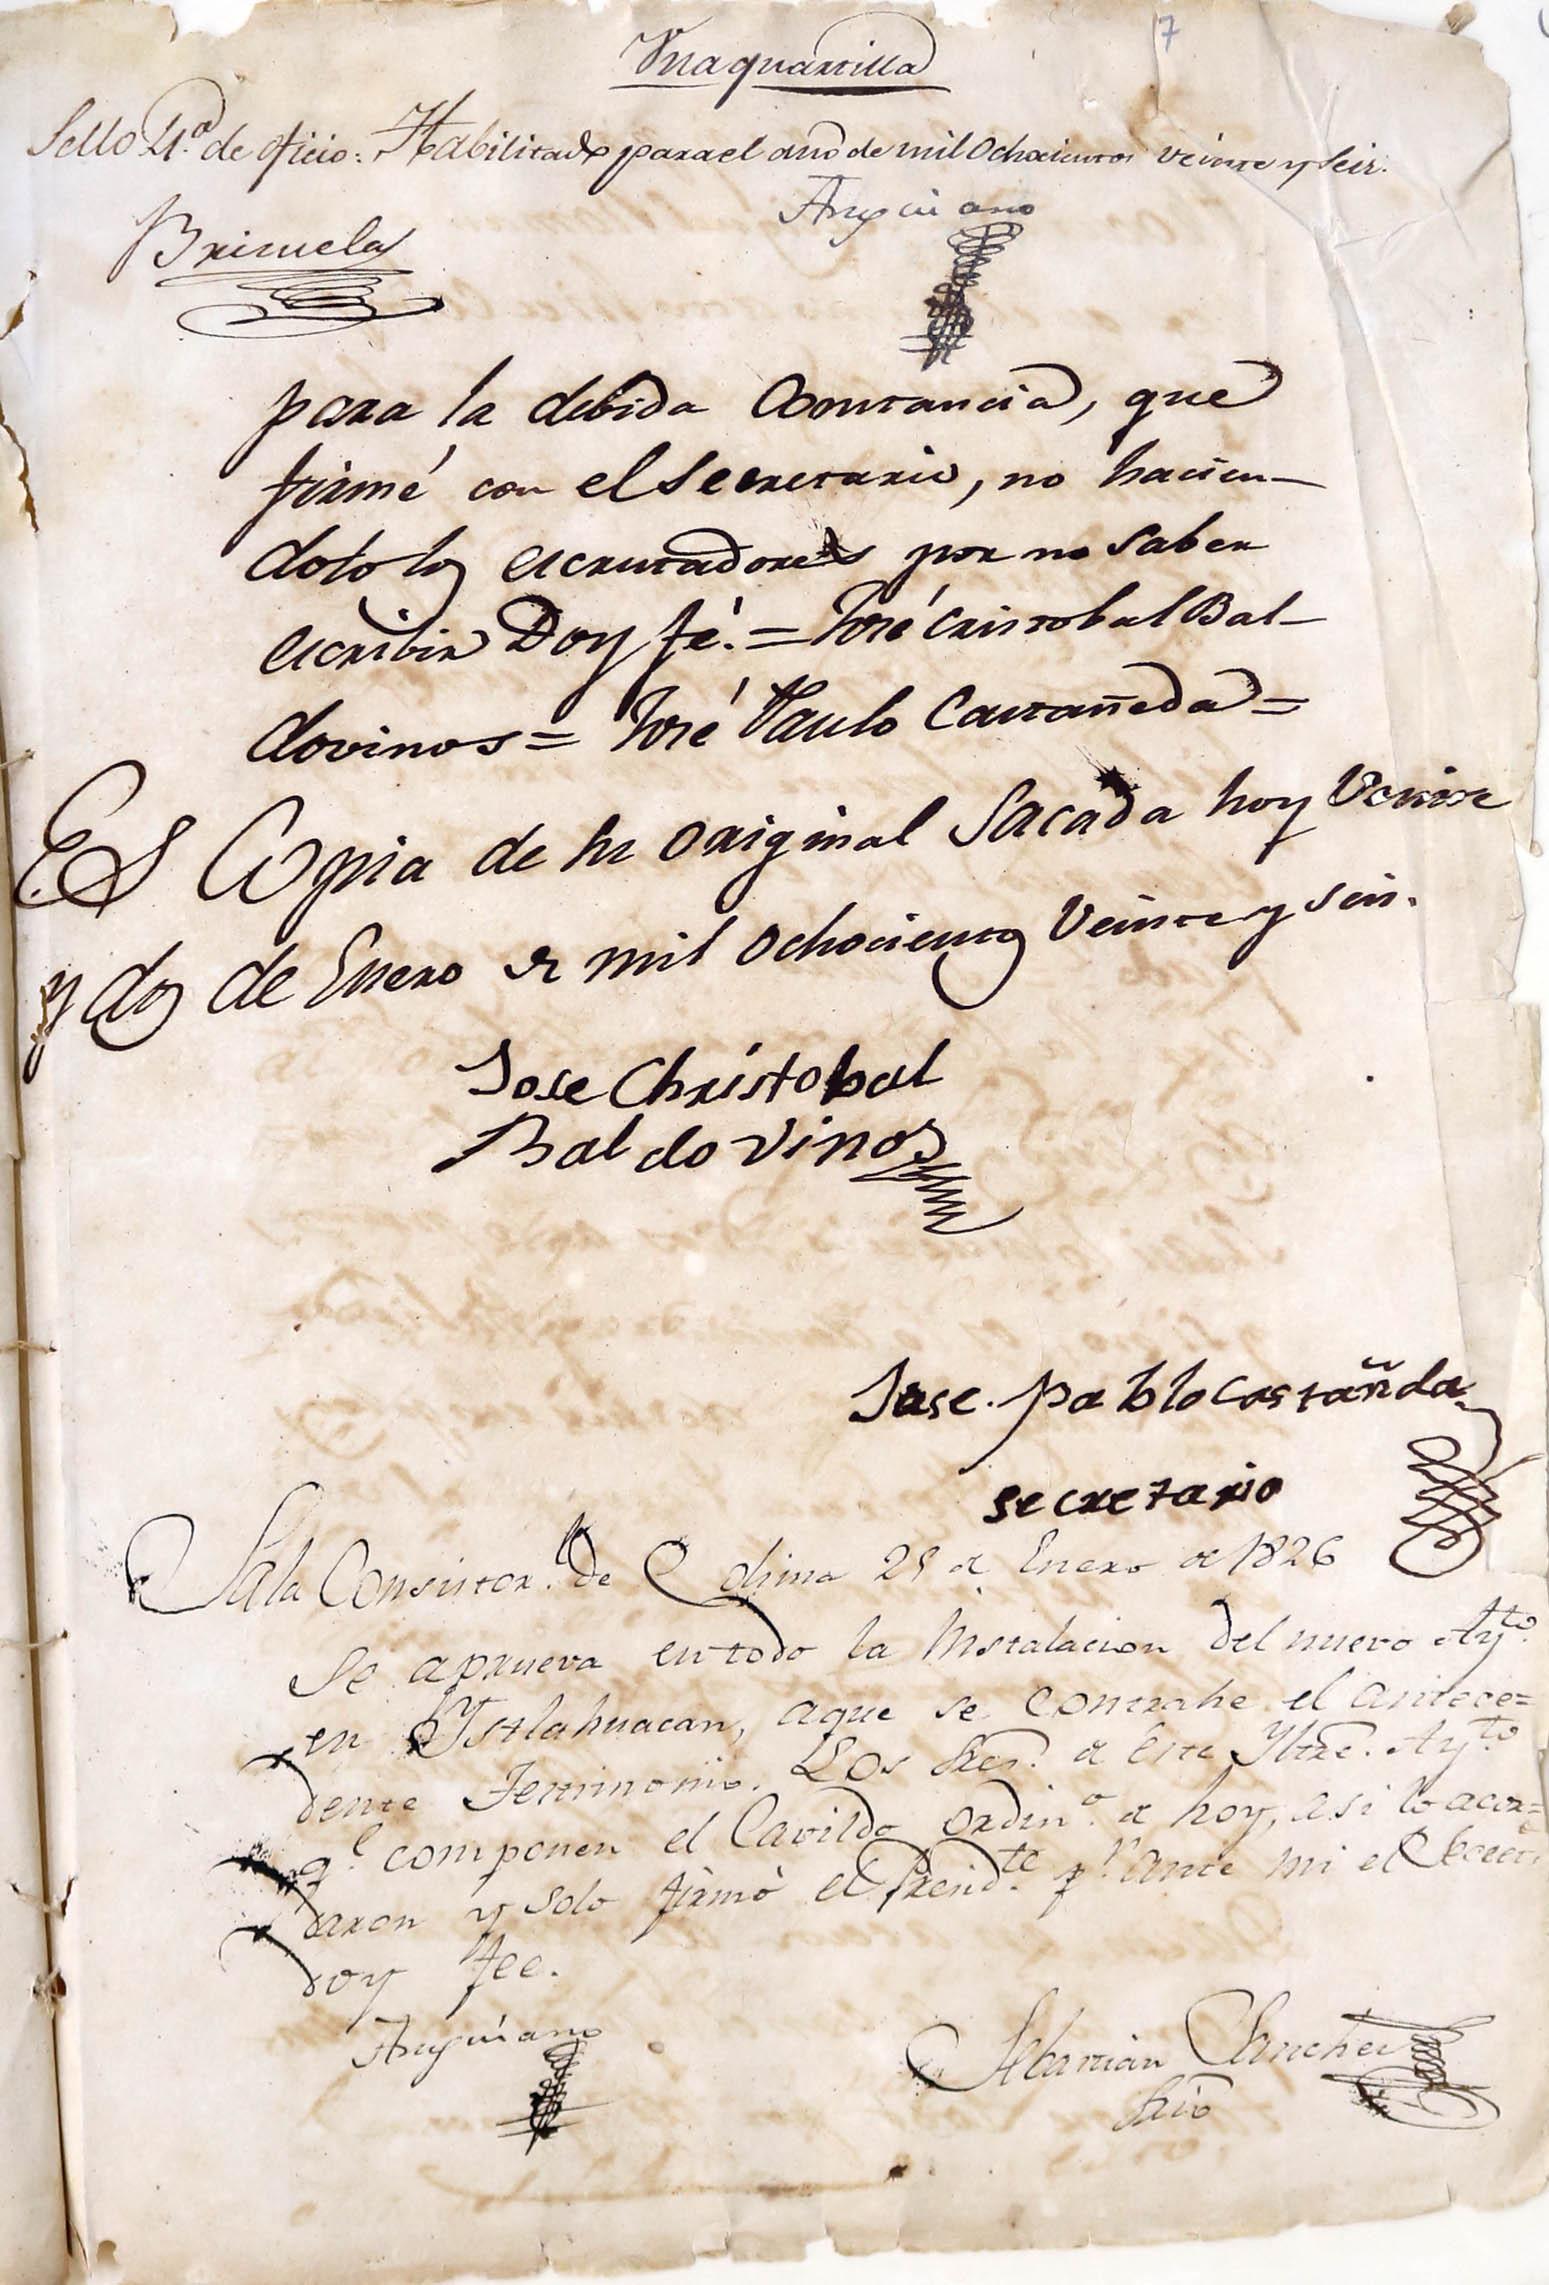 7
Una quartilla
Sello 4.º de oficio: Habilitado para el año de mil ochocientos veinte y seis.
Anguiano
Brizuela
para la debida Constancia, que
firmé con el Secretario, no hacien-
dolo los escrutadores por no saber
escribir Doy fé. = José Cristobal Bal-
dovinos = José Paulo Castañeda =
Es Copia de su original Sacada hoy Veinte
y dos de Enero de mil ochocientos Veinte y seis.
Jose Christobal
Baldovinos
Jose. pablo castañda
secretario
Sala Consistor.l de Colima 25 de Enero de 1826
Se aprueva en todo la Instalacion del nuevo Ay.to
en Ystlahuacan, aque se contrahe el antece=
dente Testimonio. Los Sres. de este Yltre. Ay.to
q.e componen el Cavildo ordin.o de hoy, asi lo acor=
daron y solo firmó el Presid.te p.r ante mi el Secret.o
doy fee.
Anguiano
Sebastian Sanchez
Srio